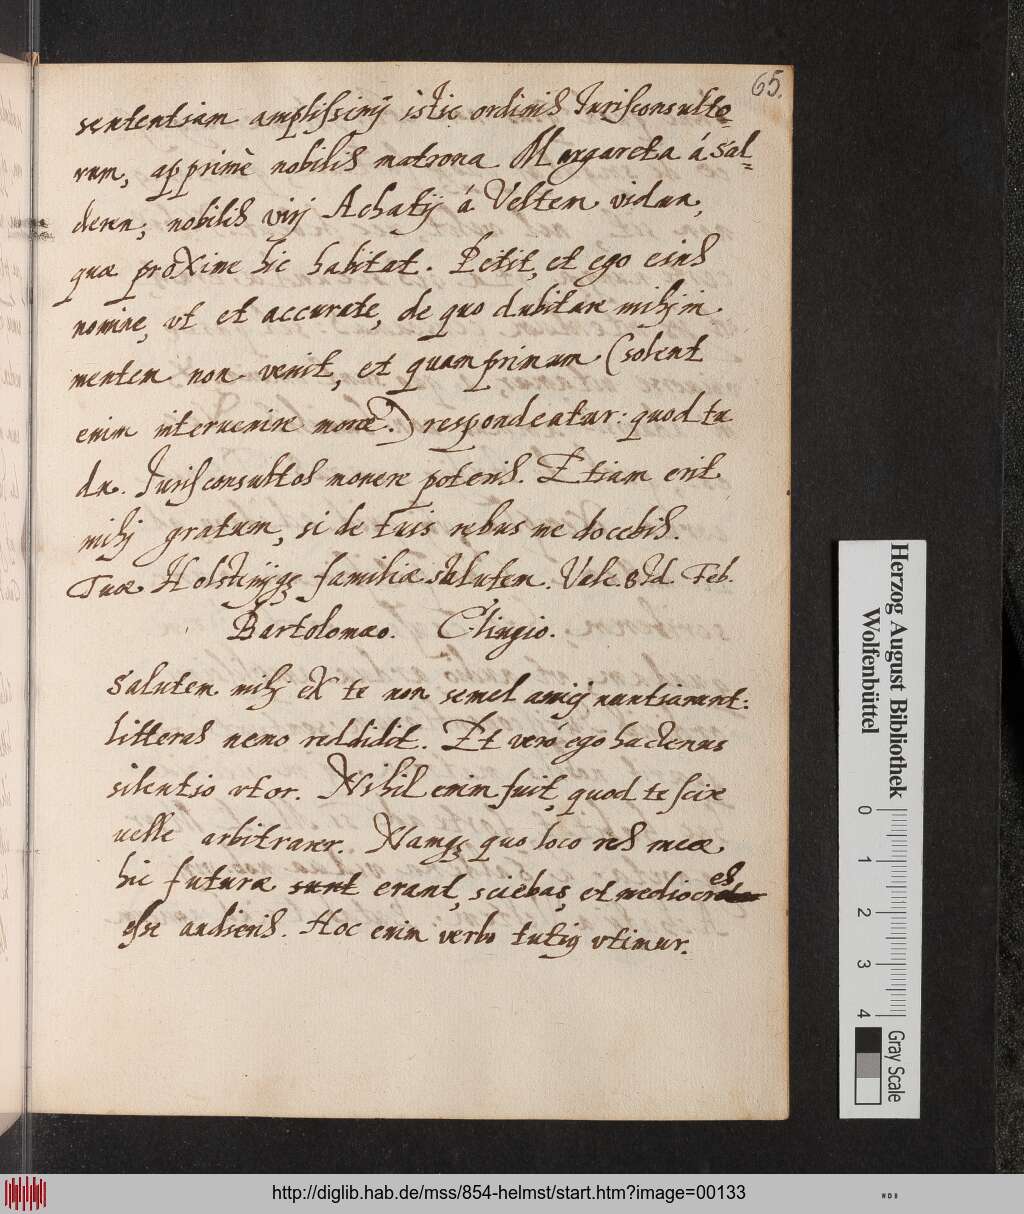 65.
sententiam amplissimj istic ordinis Jurisconsulto-
rum, apprimè nobilis matrona Margareta á Sal-
deren, nobilis virj Achatij á Veltem vidua,
quæ proxime hic habitat. Petit, et ego eius
nomine, vt et accurate, de quo dubitare mihj in
mentem non venit, et quamprimum (solent
enim interuenire moræ) respondeatur: quod tu
Jurisconsultos monere poteris. Etiam erit
mihj gratum, si de tuis rebus me docebis.
Tuæ Holstenijqꝫ familiæ salutem. Vale. 8 Id. Feb.
Bartolomæo. Clingio.
Salutem mihj ex te non semel amicj nuntiarunt:
litteras nemo reddidit. Et veró ego hactenus
silentio vtor. Nihil enim fuit, quod te scire
uelle arbitrarer. Namqꝫ quo loco res meæ
hic futuræ sunt erant, sciebas, et mediocres
esse audieris. Hoc enim verbo tutiꝰ vtimur.
Herzog August Bibliothek
Wolfenbüttel
0 1 2 3 4
Gray Scale
http://diglib.hab.de/mss/854-helmst/start.htm?image=00133
WDB